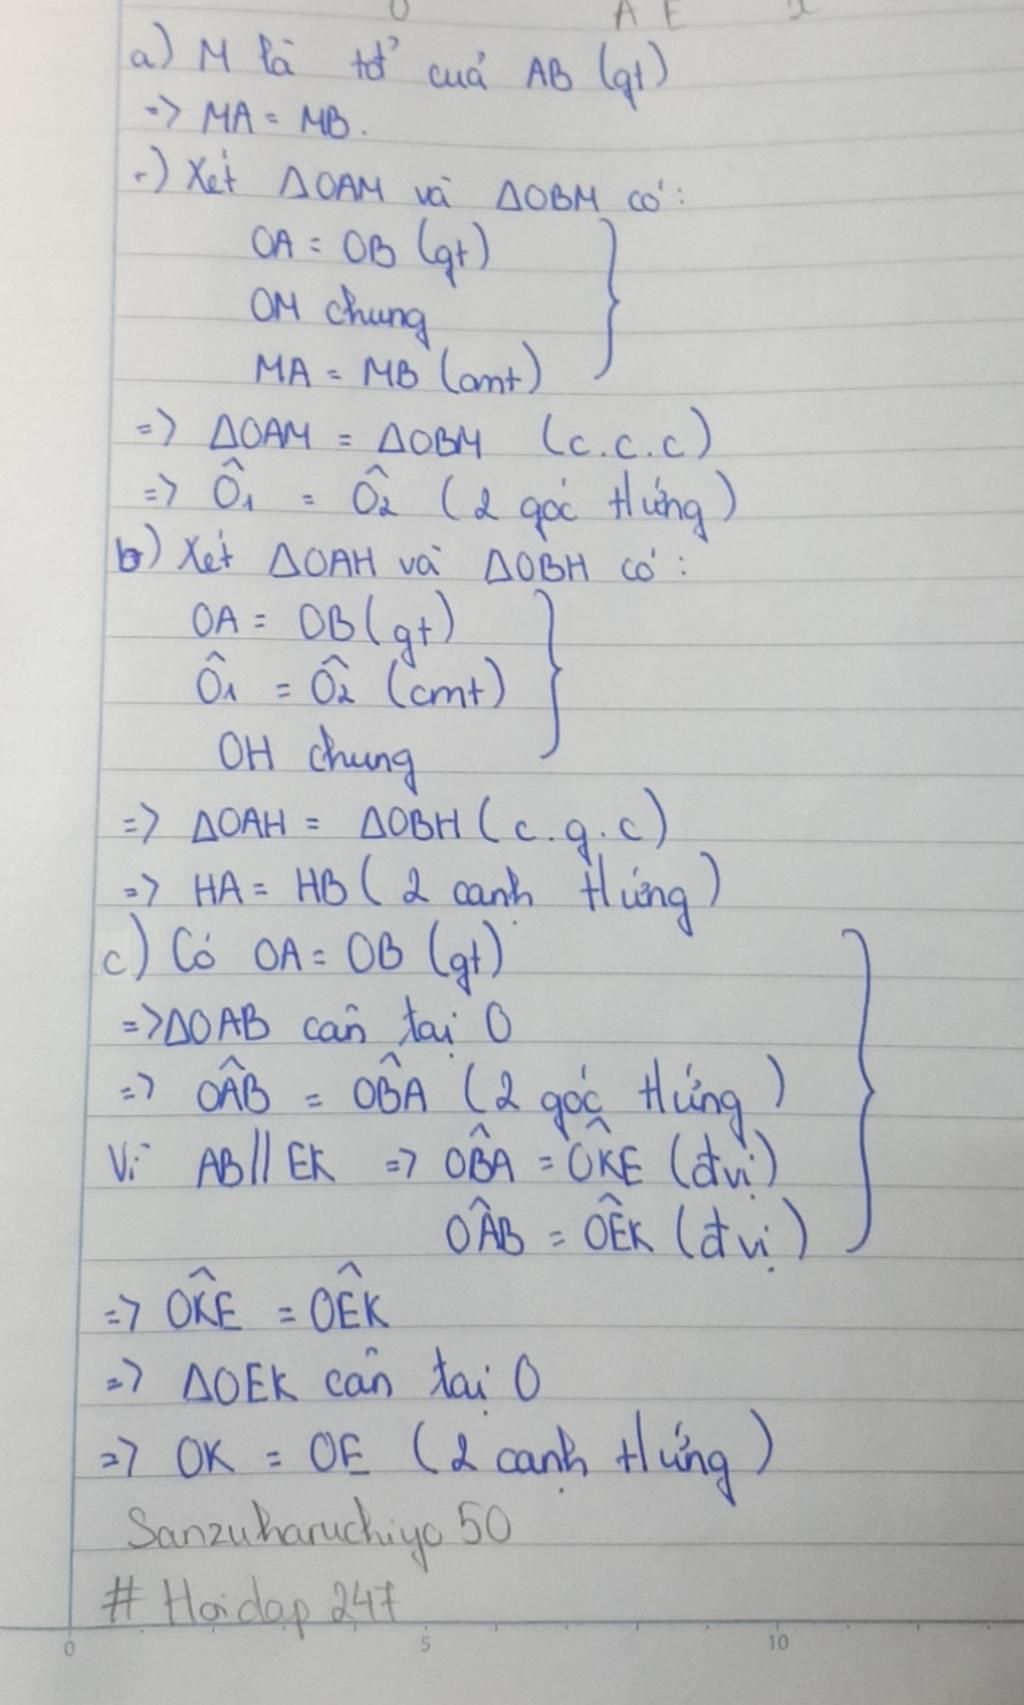 O A E x
a) M là tđ' của AB (gt)
=> MA = MB.
-) Xét ΔOAM và ΔOBM có:
OA = OB (gt)
OM chung
MA = MB (cmt)
=> ΔOAM = ΔOBM (c.c.c)
=> Ô1 = Ô2 (2 góc tứng)
b) Xét ΔOAH và ΔOBH có:
OA = OB (gt)
Ô1 = Ô2 (cmt)
OH chung
=> ΔOAH = ΔOBH (c.g.c)
=> HA = HB (2 canh tứng)
c) Có OA = OB (gt)
=> ΔOAB cân tại O
=> OÂB = OB̂A (2 góc tứng)
Vì AB // EK => OB̂A = OK̂E (đvị)
OÂB = OÊK (đvị)
=> OK̂E = OÊK
=> ΔOEK cân tại O
=> OK = OE (2 cạnh tứng)
Sanzuharuchiyo 50
# Hoidap 247
0 5 10